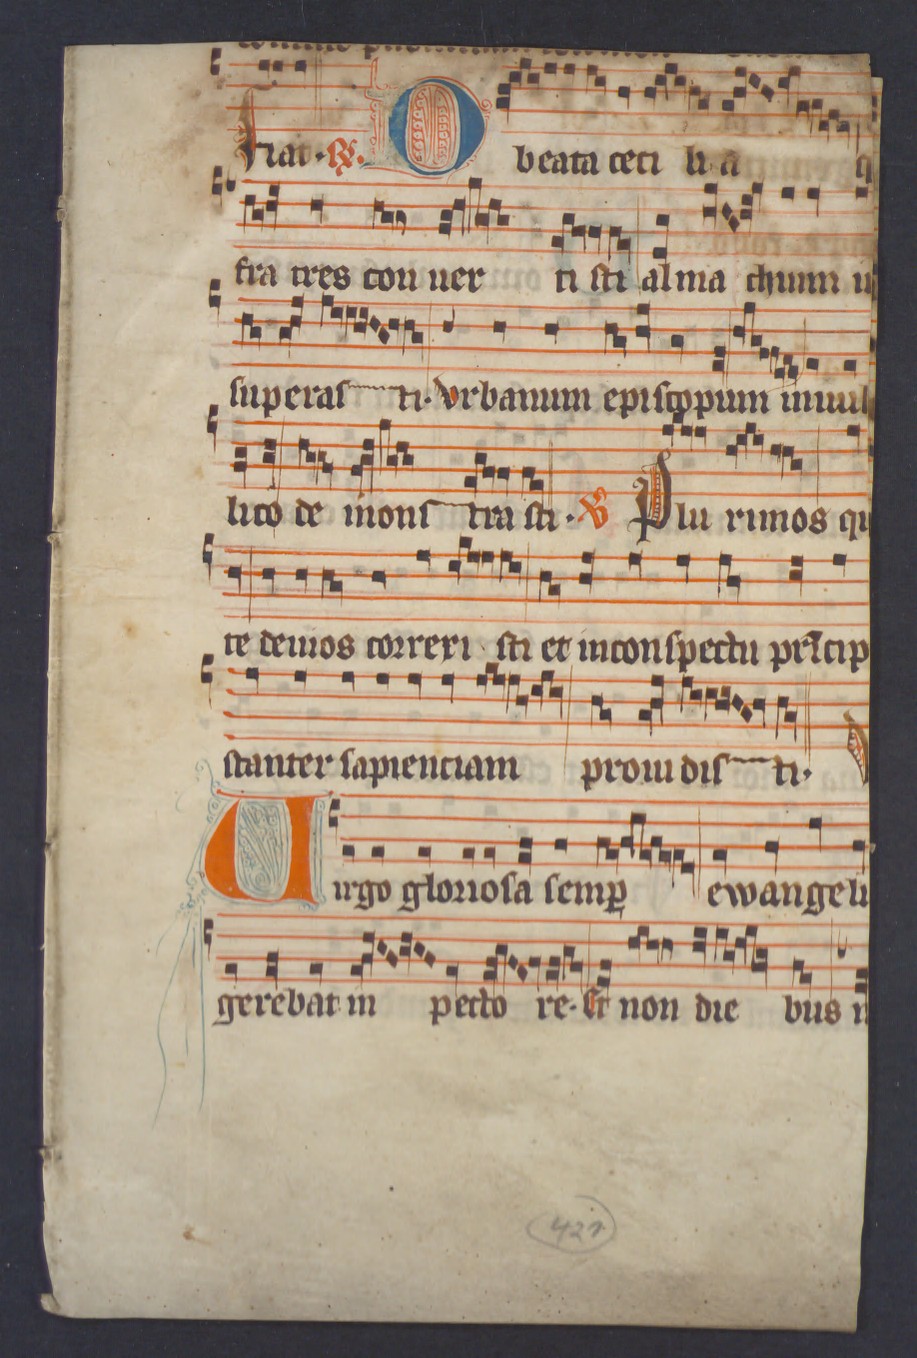 hat · R. O beata ceci li a
fra tres con uer ti sti al ma chum
superas ti · vrbanum episcopum in uul
lico de mons tra sti · V Plu rimos qu
te demos correxi sti et in conspectu
stanter sapienciam proui dis ti ·
Uirgo gloriosa semp ewangeli
gerebat in pecto re · Et non die bus
421